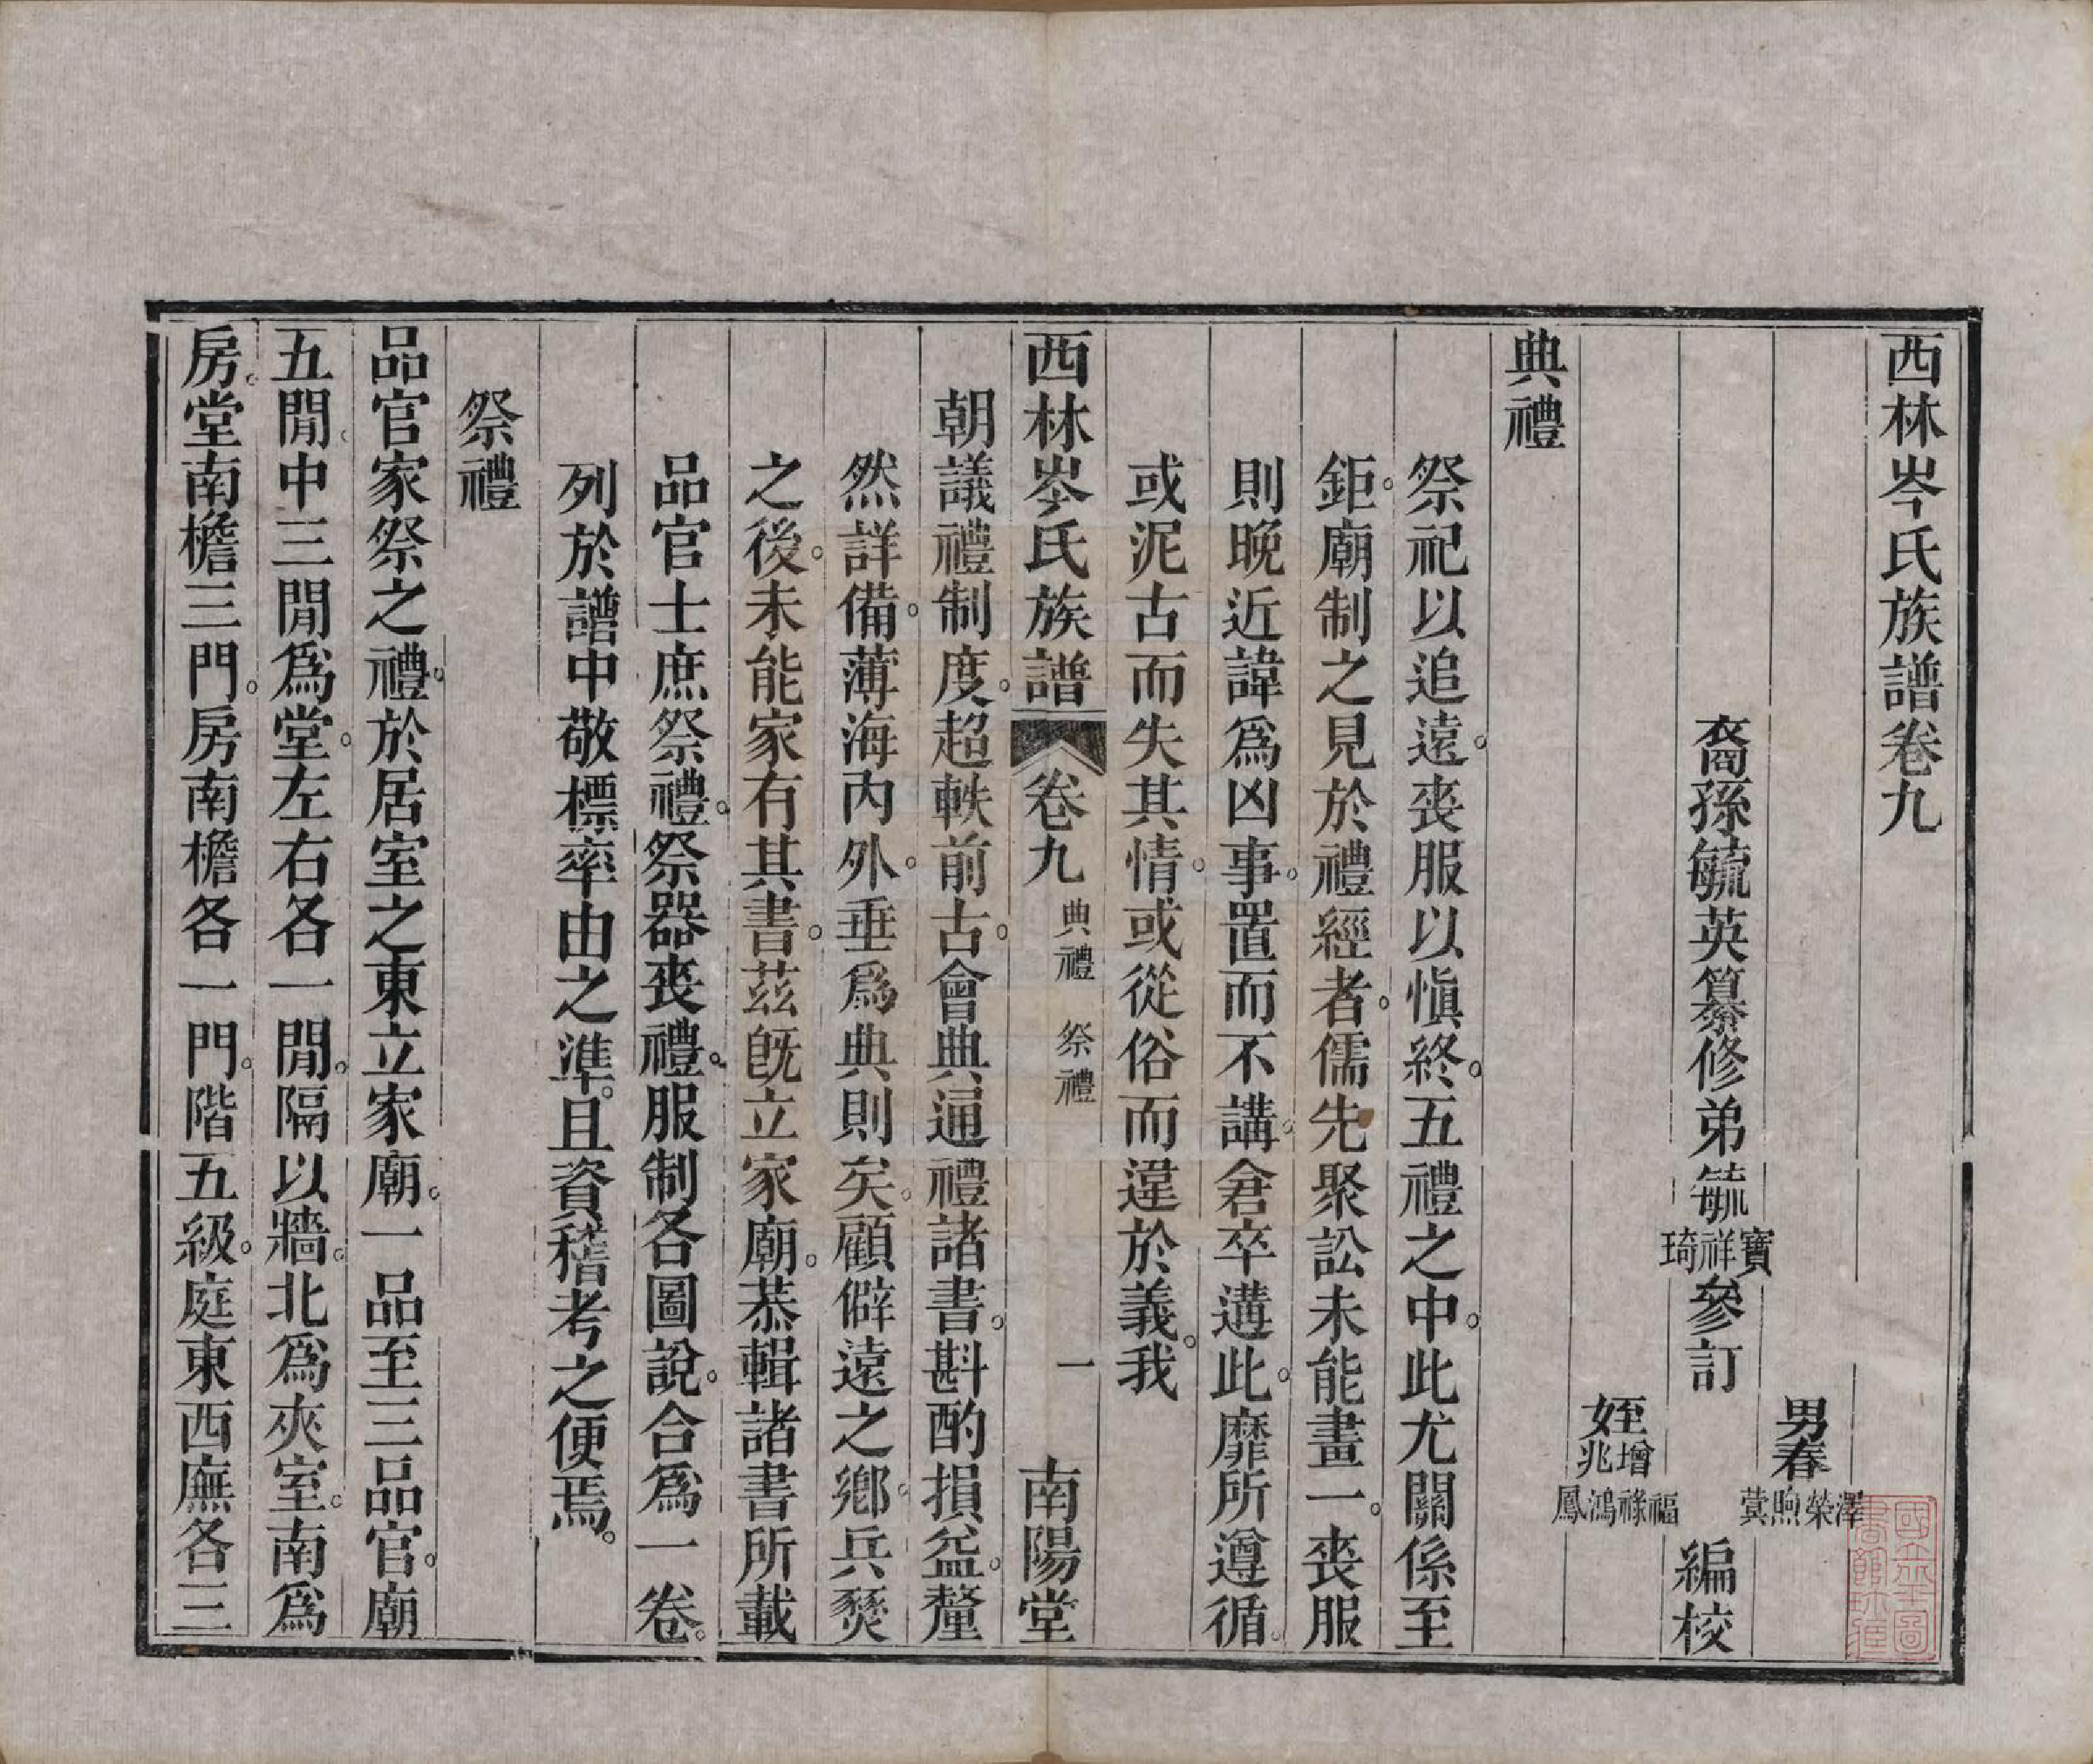 西林岑氏族譜卷九
男春澤榮煦蓂
裔孫毓英纂修弟毓寶祥琦參訂
編校
姪增兆福祿鴻鳳
典禮
祭祀以追遠。喪服以愼終。五禮之中。此尤關係至
鉅。廟制之見於禮經者。儒先聚訟未能畫一。喪服
則晚近諱爲凶事。置而不講。倉卒遘此。靡所遵循。
或泥古而失其情。或從俗而違於義。我
西林岑氏族譜 卷九 典禮 祭禮 一 南陽堂
朝議禮制度。超軼前古。會典通禮諸書。斟酌損益。釐
然詳備。薄海內外。垂爲典則矣。顧僻遠之鄉。兵燹
之後。未能家有其書。茲旣立家廟。恭輯諸書所載
品官士庶祭禮。祭器喪禮。服制各圖說。合爲一卷。
列於譜中敬標率由之準。且資稽考之便焉。
祭禮
品官家祭之禮。於居室之東立家廟。一品至三品官。廟
五閒。中三閒爲堂。左右各一閒。隔以牆。北爲夾室。南爲
房。堂南檐三門。房南檐各一門。階五級。庭東西廡各三
國立北平圖書館珍藏